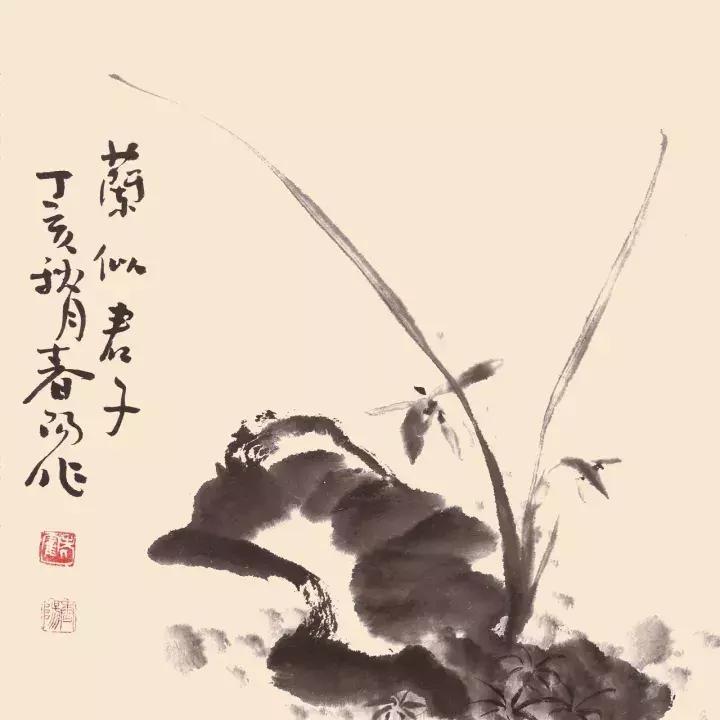 蘭似君子
丁亥秋月春陽作